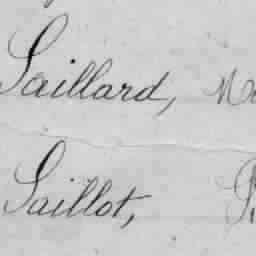 Saillard,
Saillot,